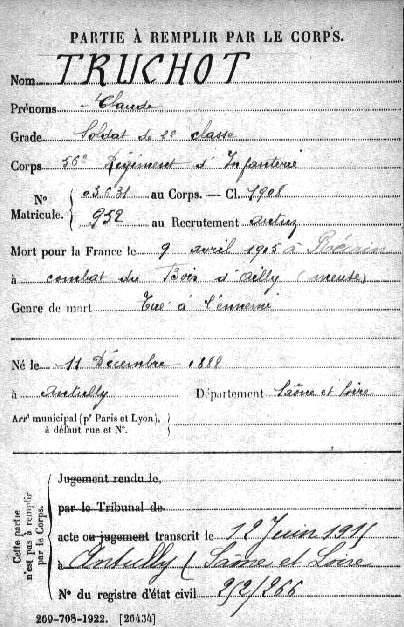 PARTIE À REMPLIR PAR LE CORPS.
Nom TRUCHOT
Prénoms Claude
Grade Soldat de 2e classe
Corps 56e Régiment d'Infanterie
N° Matricule. { 03631 au Corps. — Cl. 1908
952 au Recrutement Autun
Mort pour la France le 9 avril 1915 à
à combat du Bois d'Ailly (meuse)
Genre de mort Tué à l'ennemi
Né le 11 Décembre 1888
à Antully Département Saône et Loire
Arrt municipal (pr Paris et Lyon),
à défaut rue et N°.
Cette partie n'est pas à remplir par le Corps.
Jugement rendu le
par le Tribunal de
acte ou jugement transcrit le 12 Juin 1915
à Antully (Saône et Loire
N° du registre d'état civil 2/2/266
269-708-1922. [26434]